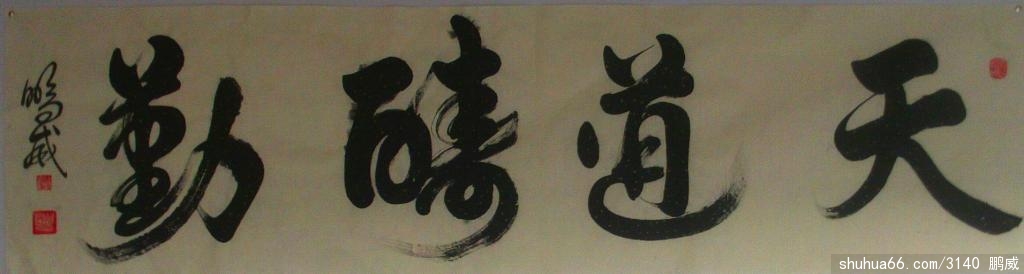 天道酬勤
鹏威
shuhua66.com/3140 鹏威